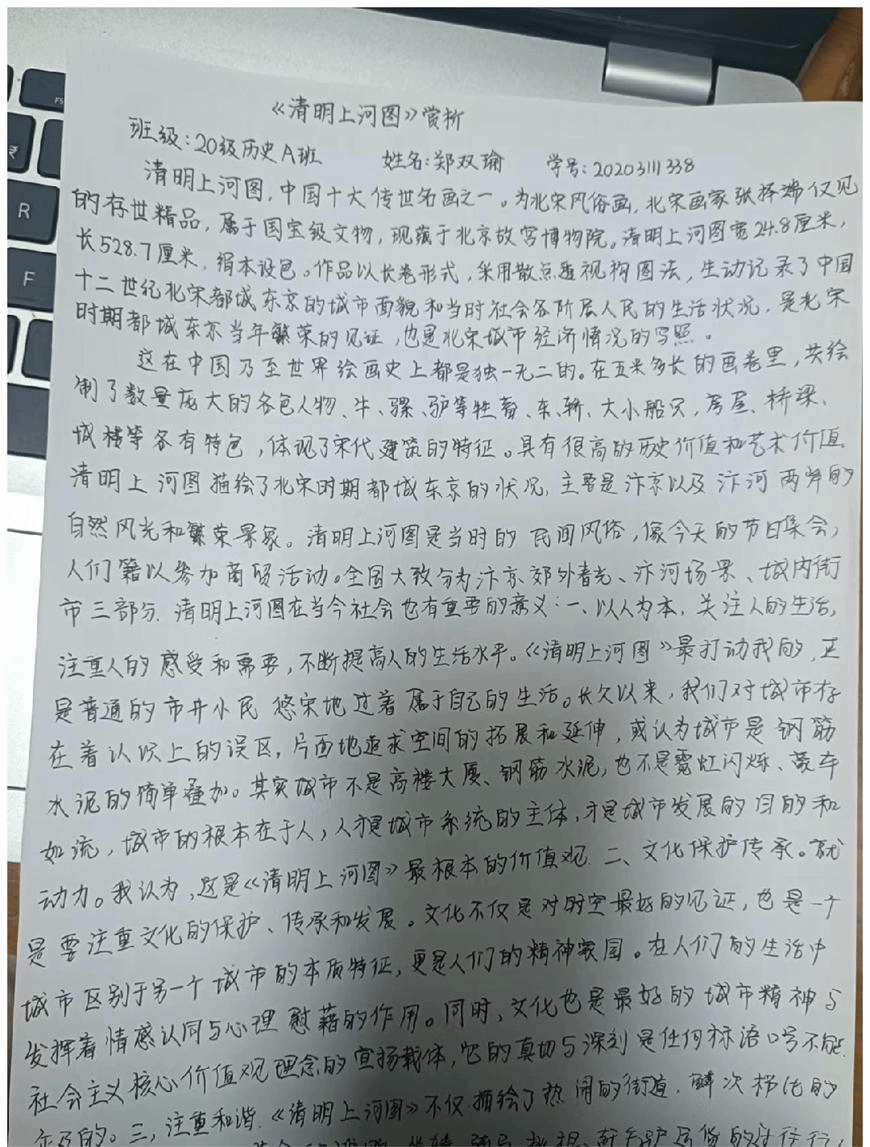 《清明上河图》赏析
班级:20级历史A班 姓名:郑双瑜 学号:20203111338
清明上河图,中国十大传世名画之一。为北宋风俗画,北宋画家张择端仅见
的存世精品,属于国宝级文物,现藏于北京故宫博物院。清明上河图宽24.8厘米,
长528.7厘米,绢本设色。作品以长卷形式,采用散点透视构图法,生动记录了中国
十二世纪北宋都城东京的城市面貌和当时社会各阶层人民的生活状况,是北宋
时期都城东京当年繁荣的见证,也是北宋城市经济情况的写照。
这在中国乃至世界绘画史上都是独一无二的。在五米多长的画卷里,共绘
制了数量庞大的各色人物、牛、骡、驴等牲畜、车、轿、大小船只,房屋、桥梁、
城楼等各有特色,体现了宋代建筑的特征。具有很高的历史价值和艺术价值
清明上河图描绘了北宋时期都城东京的状况,主要是汴京以及汴河两岸的
自然风光和繁荣景象。清明上河图是当时的民间风俗,像今天的节日集会,
人们籍以参加商贸活动。全图大致分为汴京郊外春光、汴河场景、城内街
市三部分.清明上河图在当今社会也有重要的意义:一、以人为本,关注人的生活,
注重人的感受和需要,不断提高人的生活水平。《清明上河图》最打动我的,正
是普通的市井小民悠宋地过着属于自己的生活。长久以来,我们对城市存
在着认识上的误区,片面地追求空间的拓展和延伸,或认为城市是钢筋
水泥的简单叠加。其实城市不是高楼大厦、钢筋水泥,也不是霓虹闪烁、车
如流,城市的根本在于人,人才是城市系统的主体,才是城市发展的目的和
动力。我认为,这是《清明上河图》最根本的价值观.二、文化保护传承。就
是要注重文化的保护、传承和发展。文化不仅是对时空最好的见证,也是一个
城市区别于另一个城市的本质特征,更是人们的精神家园。在人们的生活中
发挥着情感认同与心理慰藉的作用。同时,文化也是最好的城市精神与
社会主义核心价值观理念的宣扬载体,它的真切与深刻是任何标语口号不能
及的。三,注重和谐.《清明上河图》不仅描绘了热闹的街道,鳞次栉比的